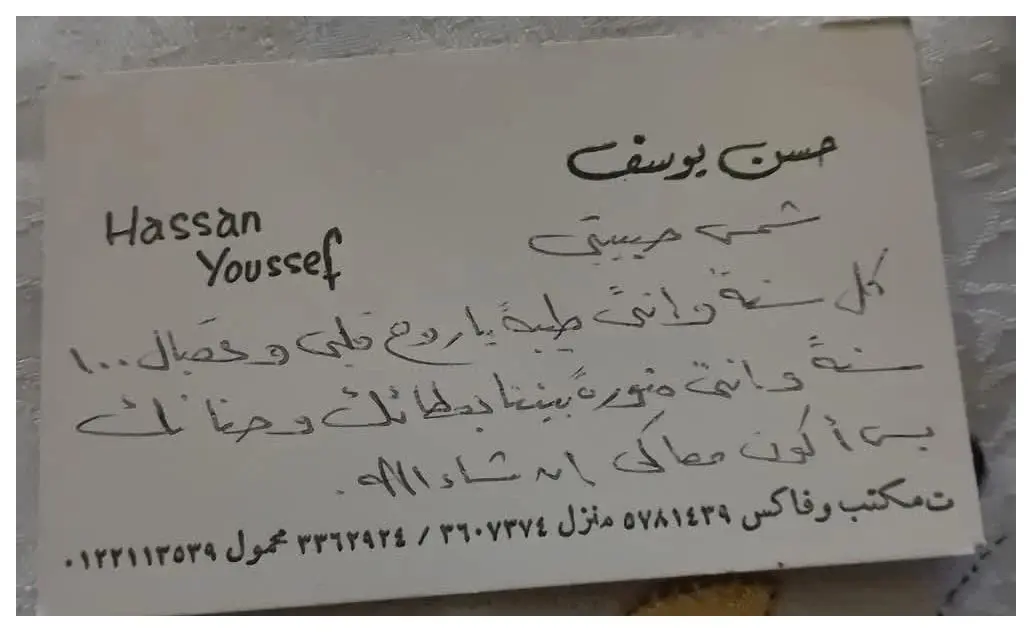 حسن يوسف
Hassan
Youssef
شمس حبيبتي
كل سنة وانتى طيبة يا روح قلبى وعقبال ١٠٠
سنة وانتى منورة بيتنا بعطائك وحنانك
بس أكون معاكى إن شاء الله.
ت مكتب وفاكس ٥٧٨١٤٣٩ منزل ٣٦٠٧٣٧٤ / ٣٣٦٢٩٢٤ محمول ٠١٢٢١١٣٥٣٩